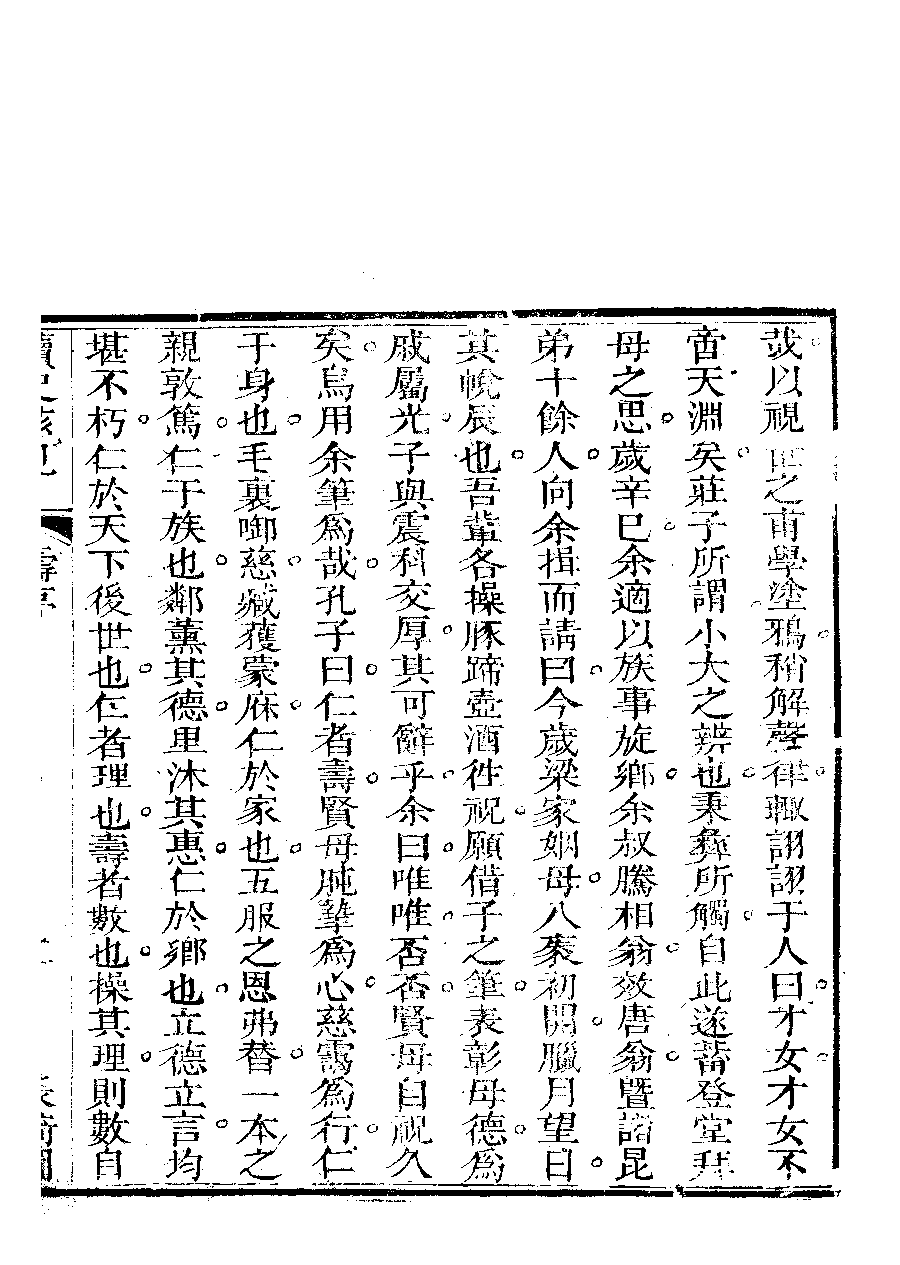 哉以視世之甫學塗鴉稍解聲律輒詡詡于人曰才女才女不
啻天淵矣莊子所謂小大之辨也秉彜所觸自此遂蓄登堂拜
母之思歲辛巳余適以族事旋鄉余叔騰相翁效唐翁曁諸昆
弟十餘人向余揖而請曰今歲梁家姻母八袠初開臘月望日
其帨辰也吾輩各操豚蹄壺酒徃祝願借子之筆表彰母德爲
戚屬光子與震科交厚其可辭乎余曰唯唯否否賢母自祝久
矣烏用余筆爲哉孔子曰仁者壽賢母肫摯爲心慈靄爲行仁
于身也毛裏啣慈臧獲蒙庥仁於家也五服之恩弗替一本之
親敦篤仁于族也鄰薰其德里沐其惠仁於鄉也立德立言均
堪不朽仁於天下後世也仁者理也壽者數也操其理則數自
讀史
壽序